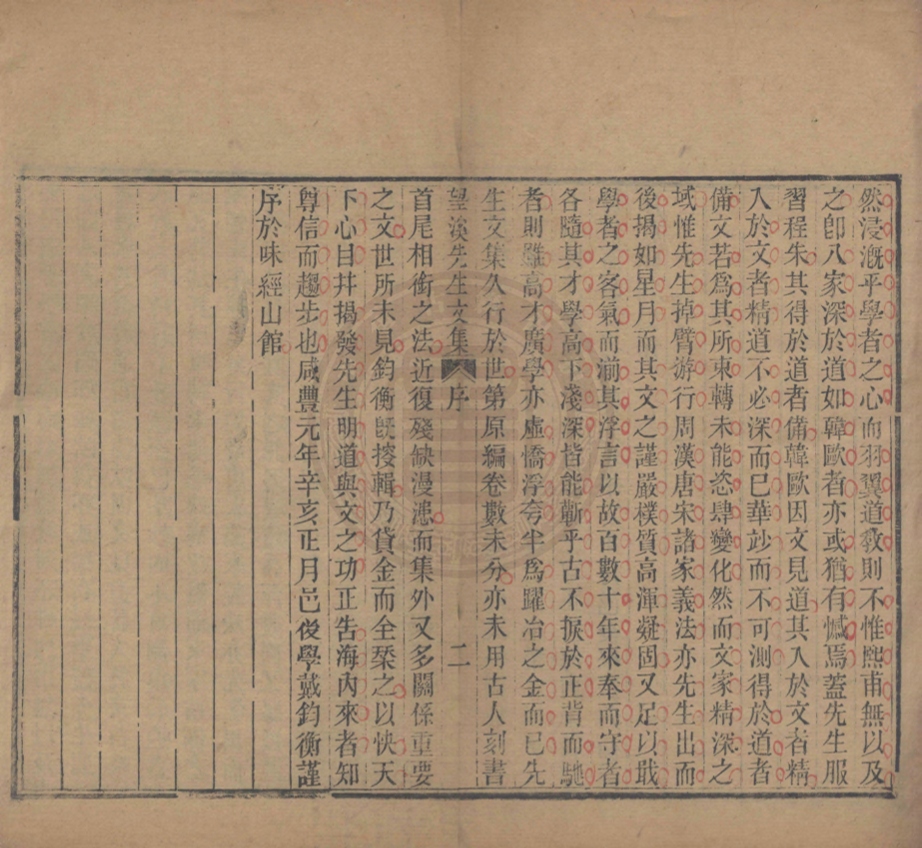 然浸漑乎學者之心而羽翼道敎則不惟熙甫無以及
之卽八家深於道如韓歐者亦或猶有憾焉蓋先生服
習程朱其得於道者備韓歐因文見道其入於文者精
入於文者精道不必深而已華妙而不可測得於道者
備文若爲其所束轉未能恣肆變化然而文家精深之
域惟先生掉臂游行周漢唐宋諸家義法亦先生出而
後揭如星月而其文之謹嚴樸質高渾凝固又足以戢
學者之客氣而湔其浮言以故百數十年來奉而守者
各隨其才學高下淺深皆能蘄乎古不掞於正背而馳
者則雖高才廣學亦虛憍浮夸半爲躍冶之金而已先
生文集久行於世第原編卷數未分亦未用古人刻書
望溪先生文集 序 二
首尾相銜之法近復殘缺漫漶而集外又多關係重要
之文世所未見鈞衡旣搜輯乃貸金而全栞之以快天
下心目幷揭發先生明道與文之功正告海內來者知
尊信而趨步也咸豐元年辛亥正月邑後學戴鈞衡謹
序於味經山館